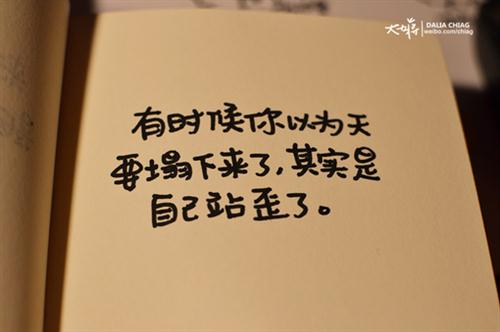 DALIA CHIAG
weibo.com/chiag
有时候你以为天
要塌下来了,其实是
自己站歪了。